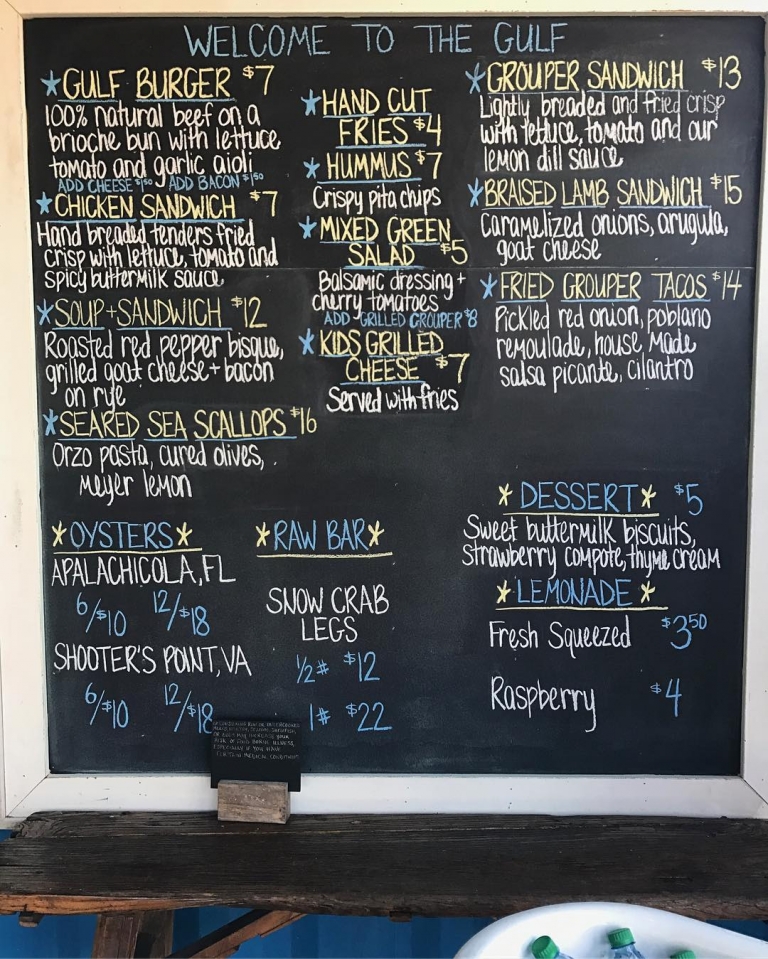 WELCOME TO THE GULF
*GULF BURGER $7
100% natural beef on a
brioche bun with lettuce,
tomato and garlic aioli
ADD CHEESE $1.50 ADD BACON $1.50
*CHICKEN SANDWICH $7
Hand breaded tenders fried
crisp with lettuce, tomato and
spicy buttermilk sauce
*SOUP+SANDWICH $12
Roasted red pepper bisque,
grilled goat cheese + bacon
on rye
*SEARED SEA SCALLOPS $16
Orzo pasta, cured olives,
Meyer lemon
*HAND CUT
FRIES $4
*HUMMUS $7
Crispy pita chips
*MIXED GREEN
SALAD $5
Balsamic dressing +
cherry tomatoes
ADD GRILLED GROUPER $8
*KIDS GRILLED
CHEESE $7
Served with fries
*GROUPER SANDWICH $13
Lightly breaded and fried crisp
with lettuce, tomato and our
lemon dill sauce
*BRAISED LAMB SANDWICH $15
Caramelized onions, arugula,
goat cheese
*FRIED GROUPER TACOS $14
Pickled red onion, poblano
remoulade, house made
salsa picante, cilantro
*OYSTERS*
APALACHICOLA, FL
6/$10 12/$18
SHOOTER'S POINT, VA
6/$10 12/$18
*RAW BAR*
SNOW CRAB
LEGS
1/2# $12
1# $22
*DESSERT* $5
Sweet buttermilk biscuits,
strawberry compote, thyme cream
*LEMONADE*
Fresh Squeezed $3.50
Raspberry $4